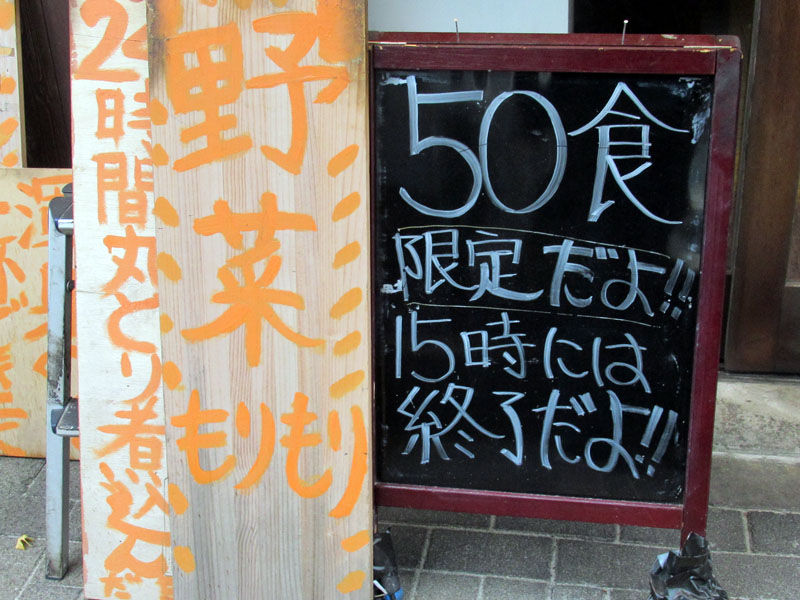 2時間丸とり煮込んだ
野菜
もりもり
50食
限定だよ!!
15時には
終了だよ!!